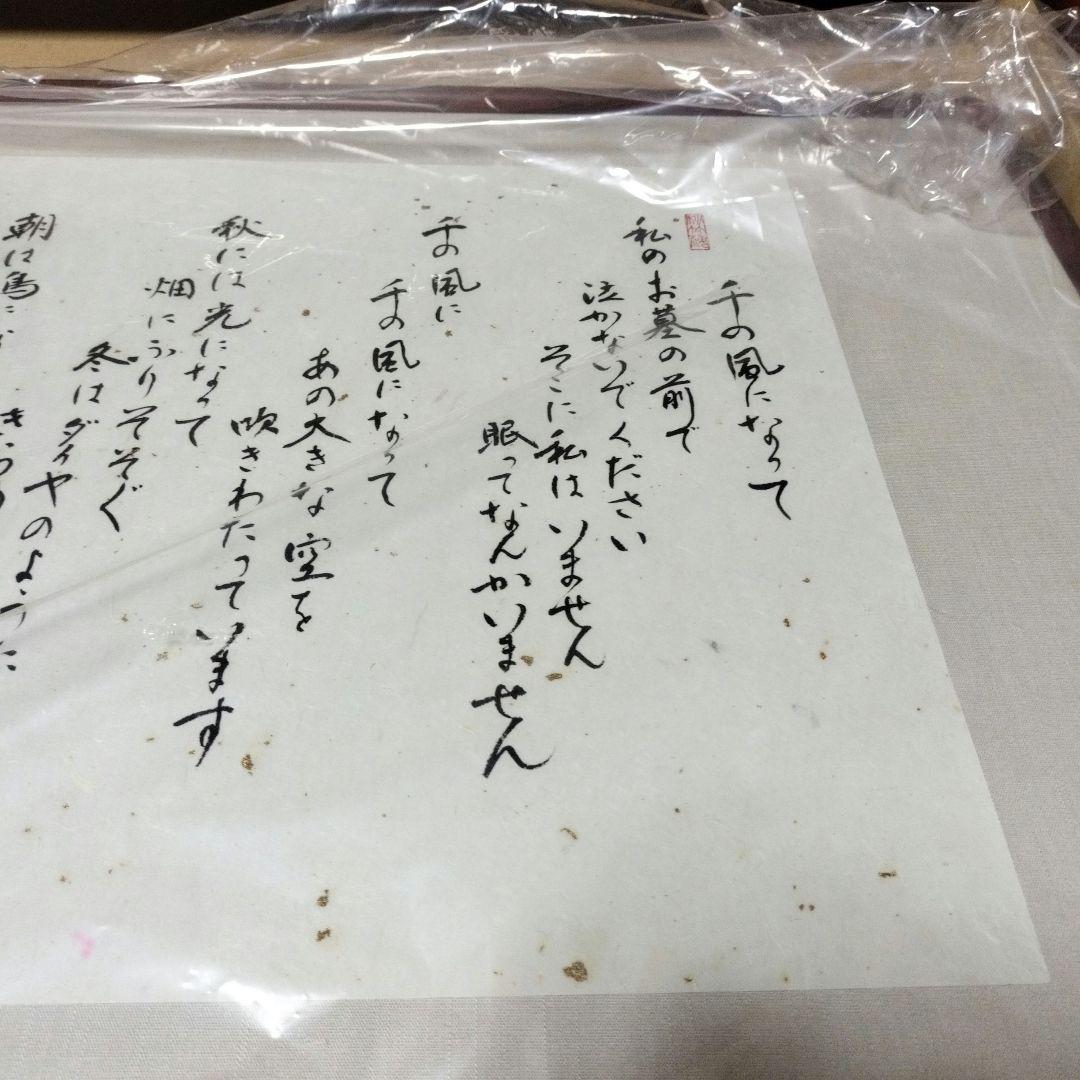 千の風になって
私のお墓の前で
泣かないでください
そこに私はいません
眠ってなんかいません
千の風に
千の風になって
あの大きな空を
吹きわたっています
秋には光になって
畑にふりそそぐ
冬はダイヤのように
朝は鳥に